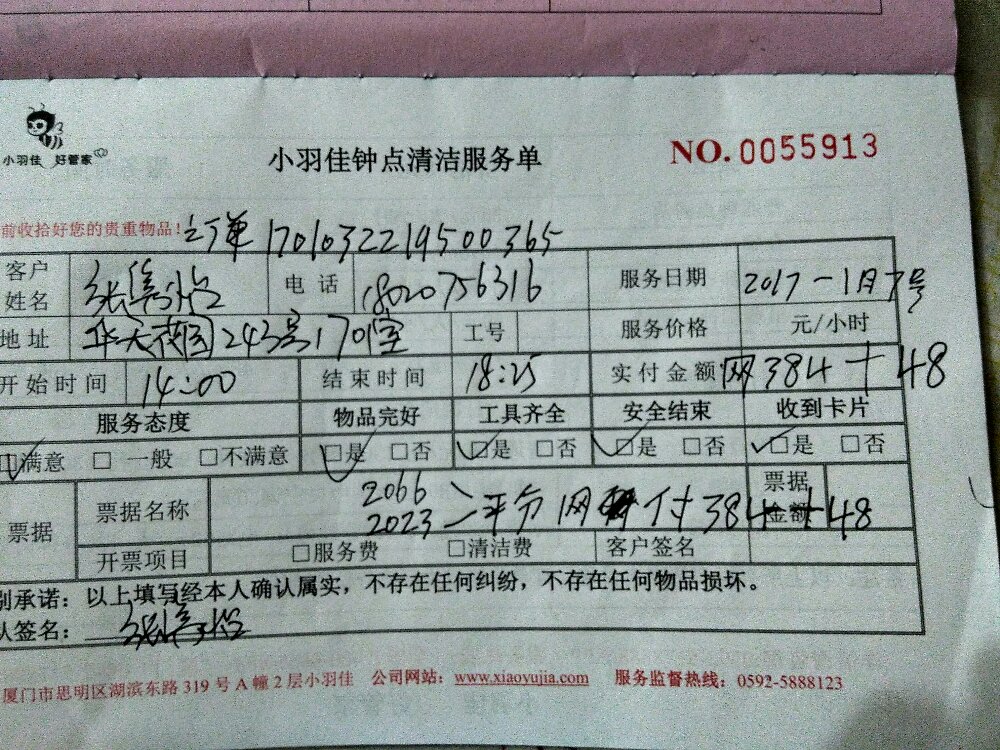 小羽佳 好管家
小羽佳钟点清洁服务单
NO. 0055913
前收拾好您的贵重物品!
订单 1701032219500365
客户姓名 张 怡 电话 18020756316 服务日期 2017-1月7号
地址 华 园243号1701室 工号 服务价格 元/小时
开始时间 14:00 结束时间 18:25 实付金额 网384+48
服务态度 物品完好 工具齐全 安全结束 收到卡片
☑满意 □一般 □不满意 ☑是 □否 ☑是 □否 ☑是 □否 ☑是 □否
票据 票据名称 2066 2023 二平分网 付384+48 票据金额
开票项目 □服务费 □清洁费 客户签名
别承诺:以上填写经本人确认属实,不存在任何纠纷,不存在任何物品损坏。
认签名: 张 怡
厦门市思明区湖滨东路319号A幢2层小羽佳 公司网站:www.xiaoyujia.com 服务监督热线:0592-5888123